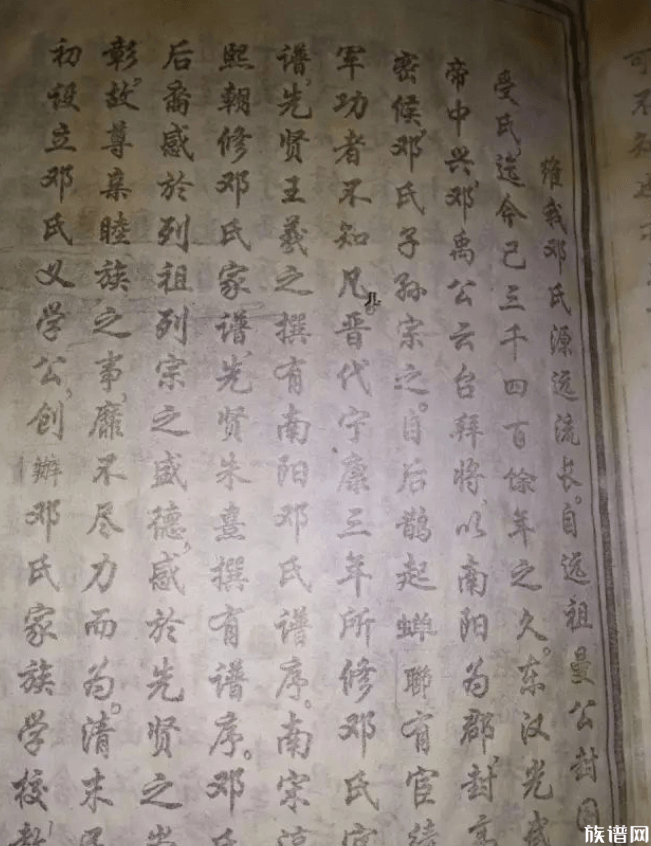 维我邓氏源远流长。自远祖曼公封国
受氏,迄今已三千四百馀年之久。东汉光武
帝中兴,邓禹公云台拜将,以南阳为郡,封高
密侯,邓氏子孙宗之。自后鹊起蝉聊有官绩
军功者不知凡几。晋代宁康三年所修邓氏宗
谱,先贤王羲之撰有南阳邓氏谱序。南宗淳
熙朝修邓氏家谱,先贤朱熹撰有谱序。邓氏
后裔感於列祖列宗之盛德,感於先贤之
彰,故尊亲睦族之事,靡不尽力而为。清末
初设立邓氏义学公,创办邓氏家族学校
可不
族谱网